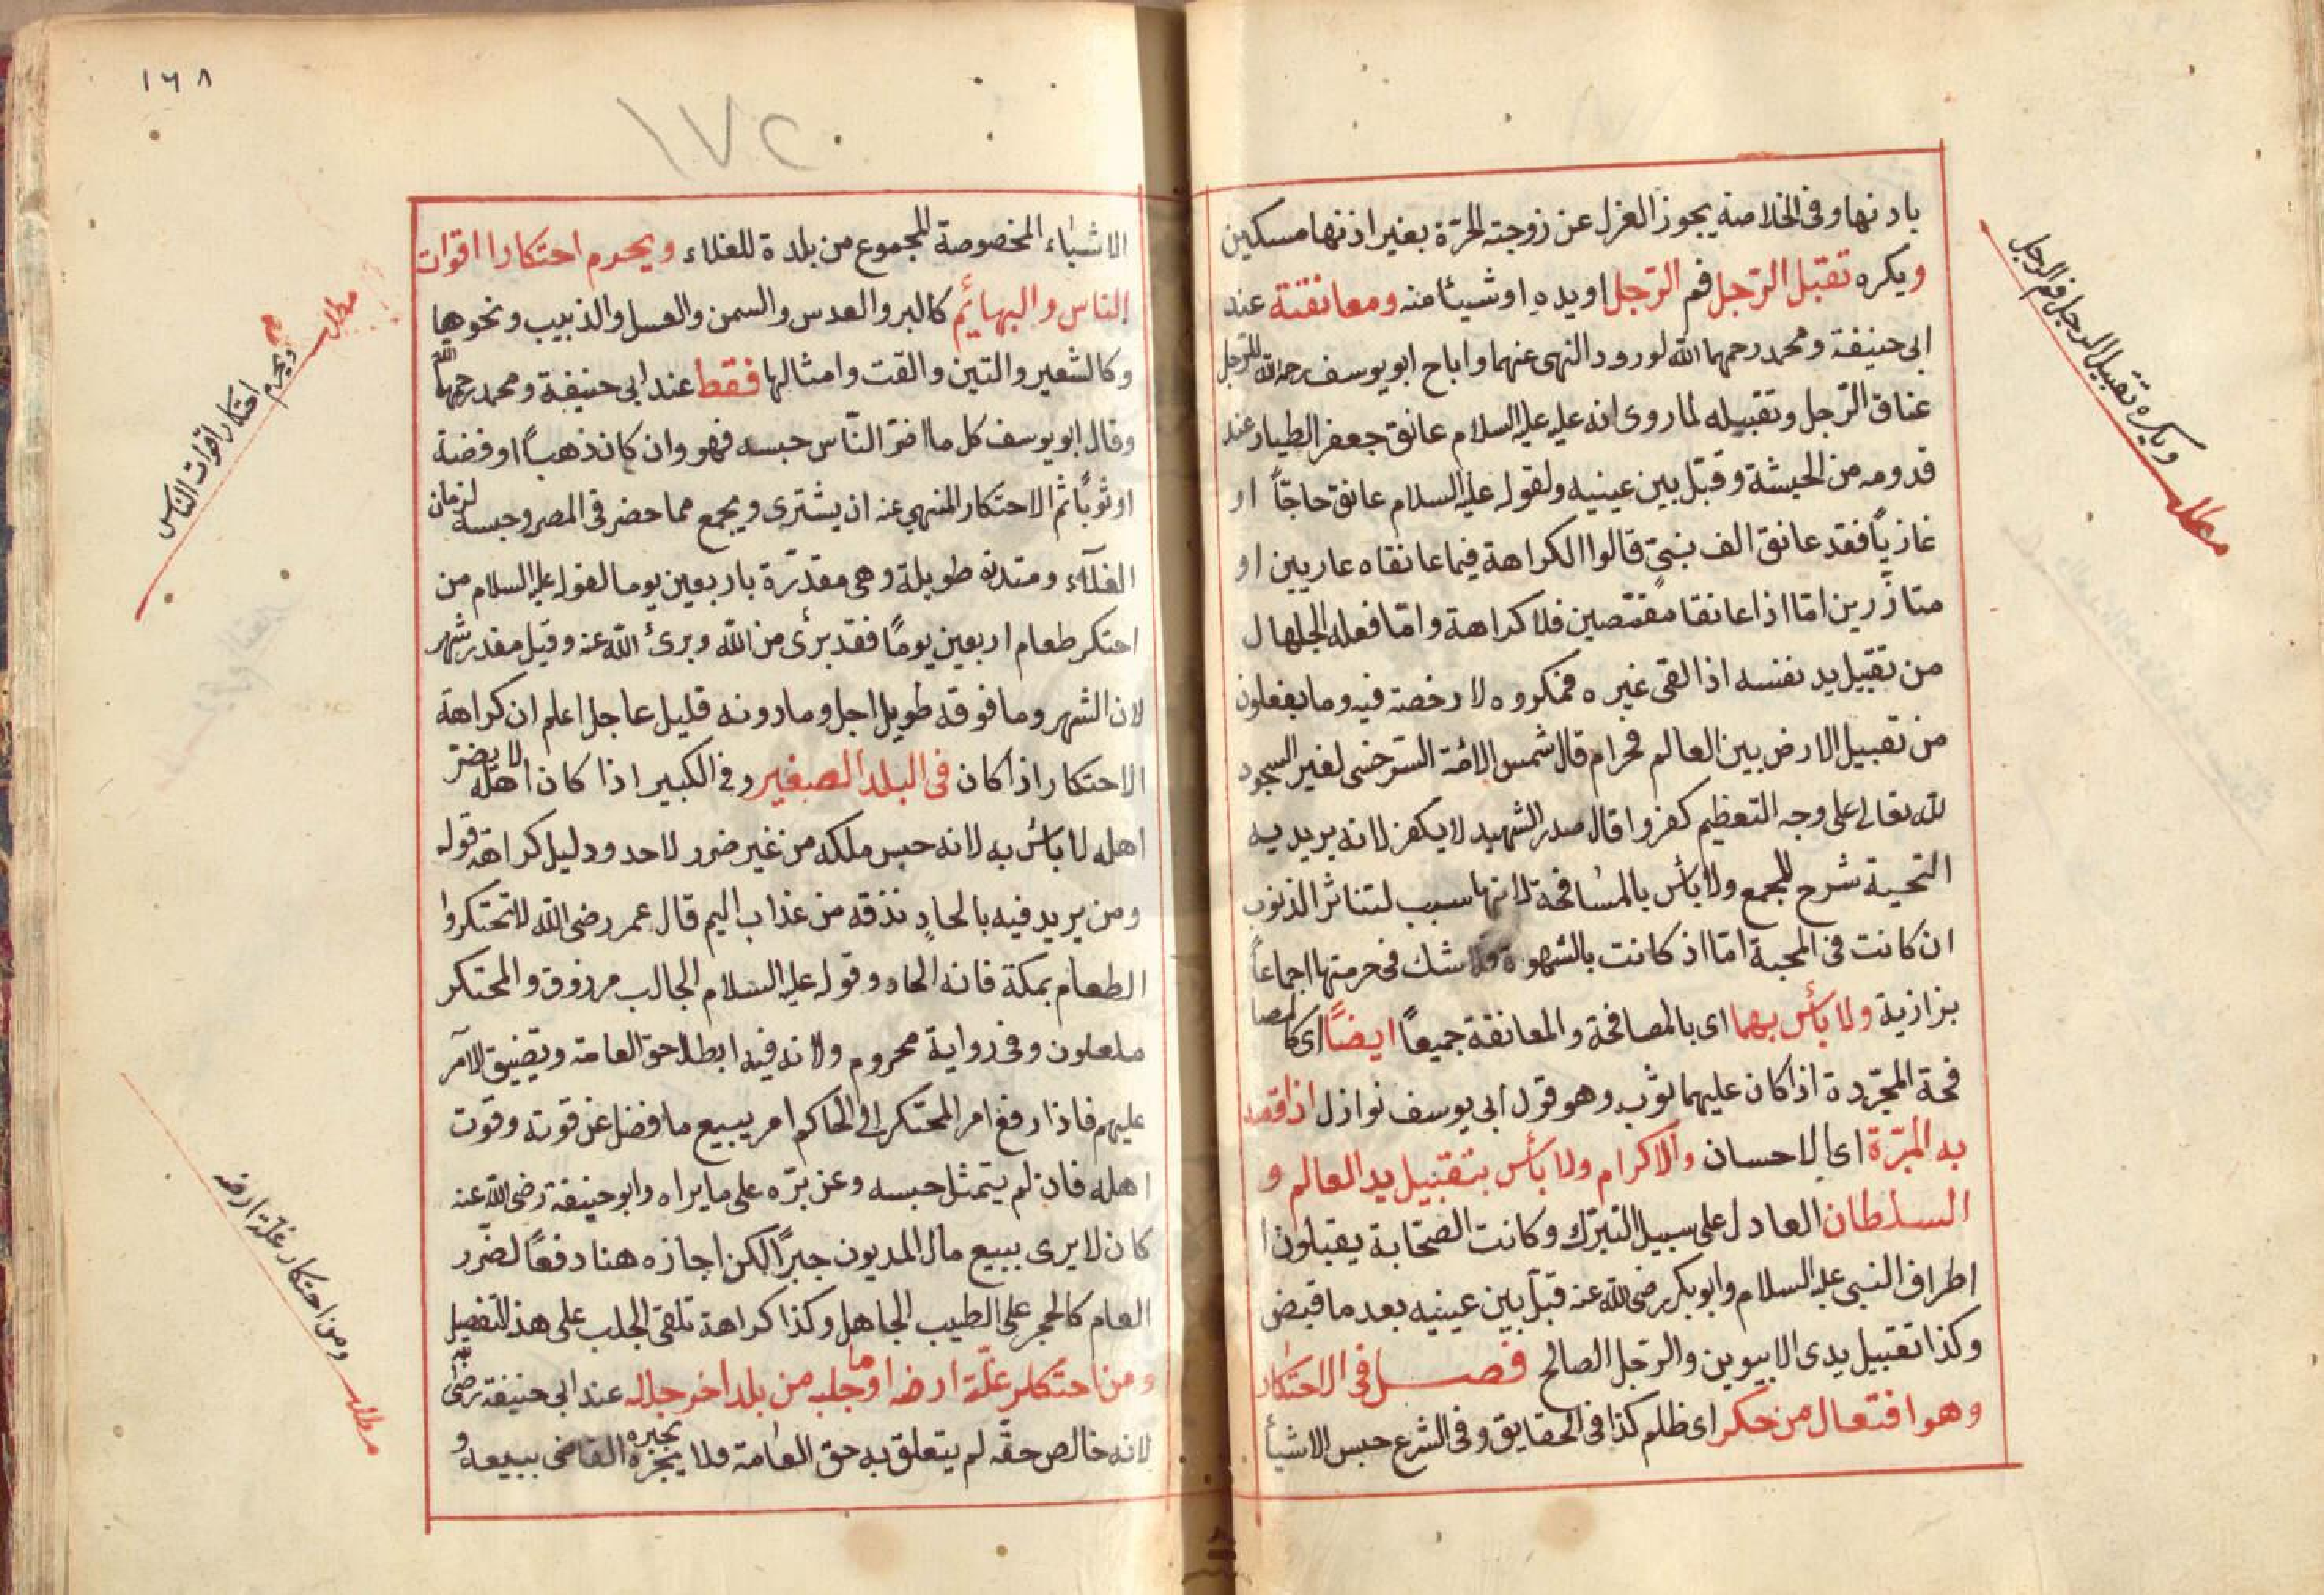 باذنها وفى الخلاصة يجوز العزل عن زوجته الحرّة بغير اذنها مسكين
ويكره تقبّل الرّجل فم الرّجل او يده او شيئا منه ومعانقته عند
ابى حنيفة ومحمد رحمهما الله لورود النهى عنهما واباح ابو يوسف رحمه الله للرّجل
عناق الرّجل وتقبيله لما روى انه عليه عليه السلام عانق جعفر الطيار عند
قدومه من الحبشة وقبّل بين عينيه ولقوله عليه السلام عانق حاجّاً او
غازياً فقد عانق الف نبىّ قالوا الكراهة فيما عانقاه عاريين او
متأزّرين امّا اذا عانقا مقمّصين فلا كراهة وامّا فعله الجلهال
من تقبيل يد نفسه اذا لقى غيره فمكروه لا رخصة فيه وما يفعلون
من تقبيل الارض بين العالم فحرام قال شمس الائمّة السّرخسى لغير السجود
لله تعالى على وجه التعظيم كفر واقال صدر الشهيد لا يكفر لانه يريد به
التحية شرح المجمع ولا بأس بالمسافحة لانها سبب لتناثر الذنوب
ان كانت فى المحبة امّا اذ كانت بالشهوة فلا شك فى حرمتها اجماعاً
بزازية ولا بأس بهما اى بالمصافحة والمعانقة جميعاً ايضاً اى كالمصا
فحة المجّردة اذا كان عليهما ثوب وهو قول ابى يوسف نوازل اذا قصد
به المبرّة اى الاحسان والاكرام ولا بأس بتقبيل يد العالم و
السلطان العادل على سبيل التبرّك وكانت الصّحابة يقبلون
اطراف النبى عليه السلام وابو بكر رضى الله عنه قبّل بين عينيه بعد ما قبض
وكذا تقبيل يدى الابيوين والرّجل الصالح فصل فى الاحتكار
وهو افتعال من حكر اى ظلم كذا فى الحقايق وفى الشرع حبس الاشيأ
ويكره تقبيل الرجل فم الرجل
مطلب
١٦٨
١٧٢
الاشياء المخصوصة المجموع من بلدة للغلاء ويحرم احتكارا اقوات
الناس والبهائم كالبر والعدس والسمن والعسل والذبيب ونحوها
وكالشعير والتين والقت وامثالها فقط عند ابى حنيفة ومحمد رحمهما الله
وقال ابو يوسف كل ما اضرّ النّاس حبسه فهو وان كان ذهباً او فضة
او ثوباً ثم الاحتكار المنهي عنه ان يشترى ويجمع مما حضر فى المصر وحبسه لزمان
الغلآء ومتدته طويلة وهى مقدّرة باربعين يوما لقوله عليه السلام من
احتكر طعام اربعين يوماً فقد برئ من الله وبرئ الله عنه وقيل مقدر شهر
لان الشهر وما فوقه طويل اجل وما دونه قليل عاجل اعلم ان كراهة
الاحتكار اذا كان فى البلد الصغير وفى الكبير اذا كان اهله لا يضرّ
اهله لا بأس به لانه حبس ملكه من غير ضرر لاحد ودليل كراهة قوله
ومن يريد فيه بالحادٍ نذقه من عذاب اليم قال عمر رضى الله لا تحتكروا
الطعام بمكة فانه الحاد وقوله عليه السلام الجالب مرزوق والمحتكر
ملعلون وفى رواية محروم ولانه فيه ابطال حق العامة ويضيق الامر
عليهم فاذا رفع امر المحتكر الى الحاكم امر يبيع ما فضل عن قوته وقوت
اهله فان لم يتمثل حبسه وعن برّه على ما يراه وابو حنيفة رضى الله عنه
كان لا يرى ببيع مال المديون جبراً لكن اجازه هنا دفعاً لضرر
العام كالحجر على الطيب الجاهل وكذا كراهة تلقى الجلب على هذ التفصيل
ومن احتكار غلّة ارضه او ما جلبه من بلد اخر جلاله عند ابى حنيفة رضى الله
لانه خالص حقّه لم يتعلق به حق العامة ولا يجبره القاضى ببيعه و
مطلب
ويحرم احتكار اقوات الناس
ومن احتكار غلّة ارضه
مطلب